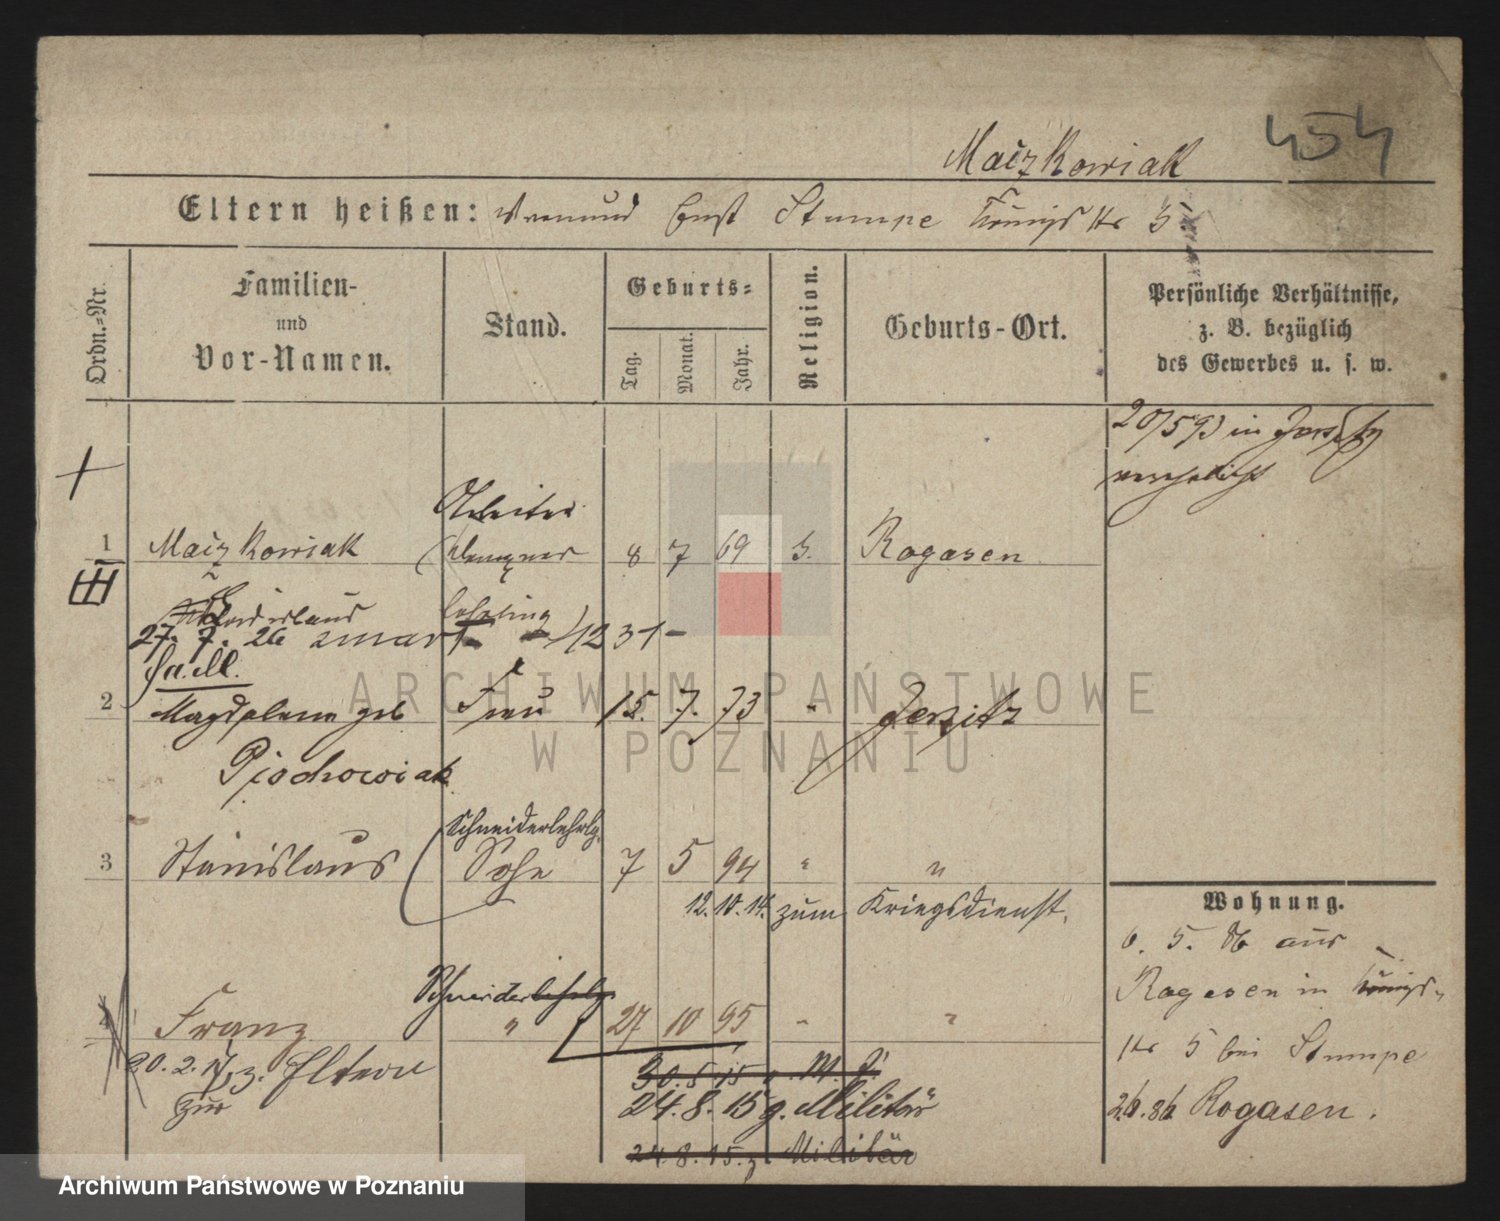 454
Maizkowiak
Eltern heißen: Vormund Ernst Stumpe Königs str 5
Ordn.-Nr.
Familien-
und
Vor-Namen.
Stand.
Geburts-
Tag.
Monat.
Jahr.
Religion.
Geburts-Ort.
Persönliche Verhältnisse,
z. B. bezüglich
des Gewerbes u. s. w.
20/5 93 in Jersitz
verehelicht
Arbeiter
1 Maizkowiak Klempner 8 7 69 Rogasen
lehrling
27. 7. 26 zmarł
2 Magdalena geb Frau 15. 7. 73 " Jersitz
Piochowiak
Schneiderlehrlg.
3 Stanislaus Sohn 7 5 94 " "
12. 10. 14. zum Kriegsdienst.
Schneiderlehrlg
4 Franz " 27 10 95 " "
20. 2. 17 z. Eltern
zur
30. 5. 15
24. 8. 15 z. Militär
24. 8. 15. z. Militär
Wohnung.
6. 5. 86 aus
Rogasen in Königs-
str 5 bei Stumpe
86 Rogasen.
ARCHIWUM PAŃSTWOWE
W POZNANIU
Archiwum Państwowe w Poznaniu